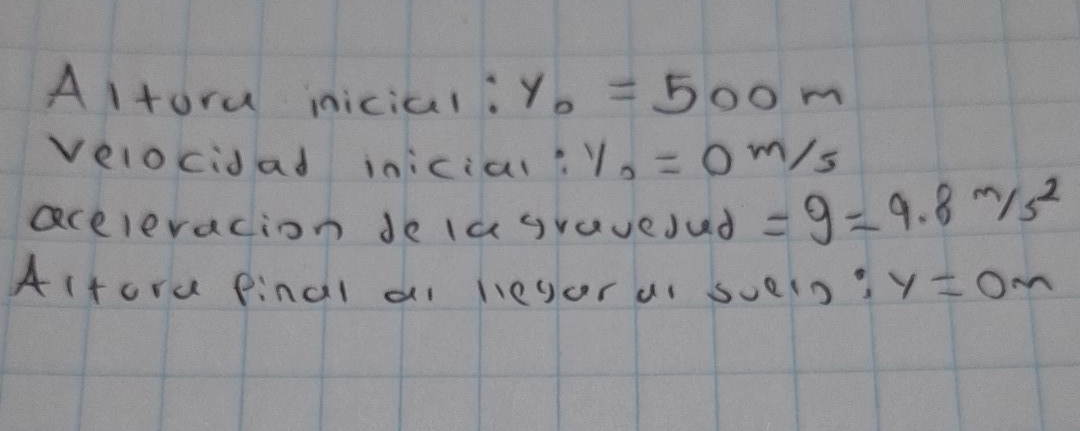 Altura inicial: Y₀ = 500 m
Velocidad inicial: Y₀ = 0 m/s
aceleracion de la gravedad = g = 9.8 m/s²
Altura final al llegar al suelo: y = 0m